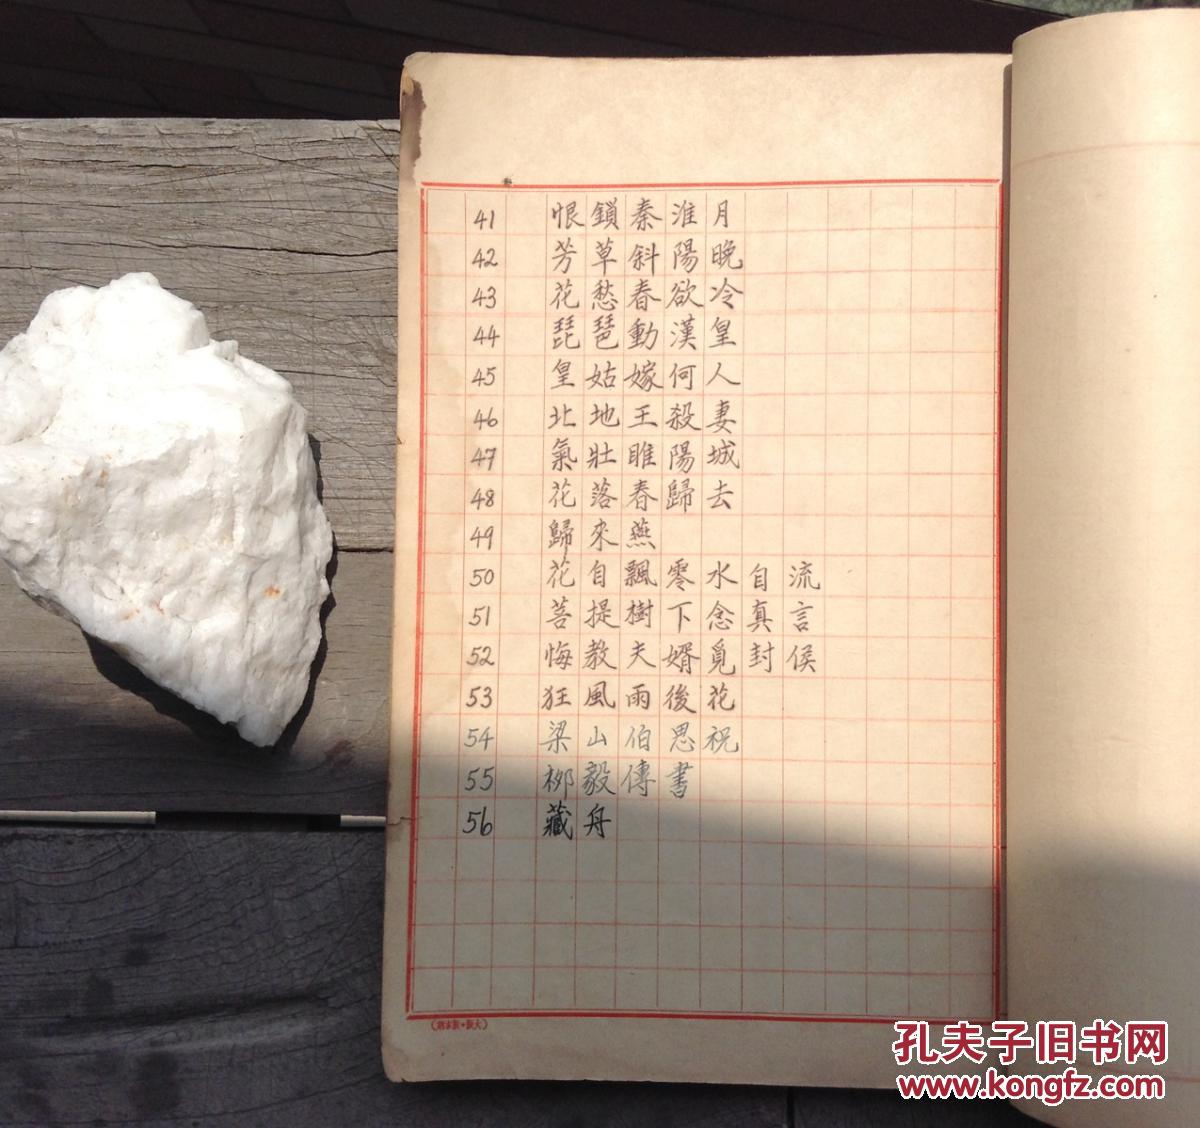 41 恨鎖秦淮月
42 芳草斜陽晚
43 花愁春欲冷
44 琵琶動漢皇
45 皇姑嫁何人
46 北地王殺妻
47 氣壯睢陽城
48 花落春歸去
49 歸來燕
50 花自飄零水自流
51 菩提樹下念真言
52 悔教夫婿覓封侯
53 狂風雨後花
54 梁山伯思祝
55 柳毅傳書
56 藏舟
孔夫子旧书网
www.kongfz.com